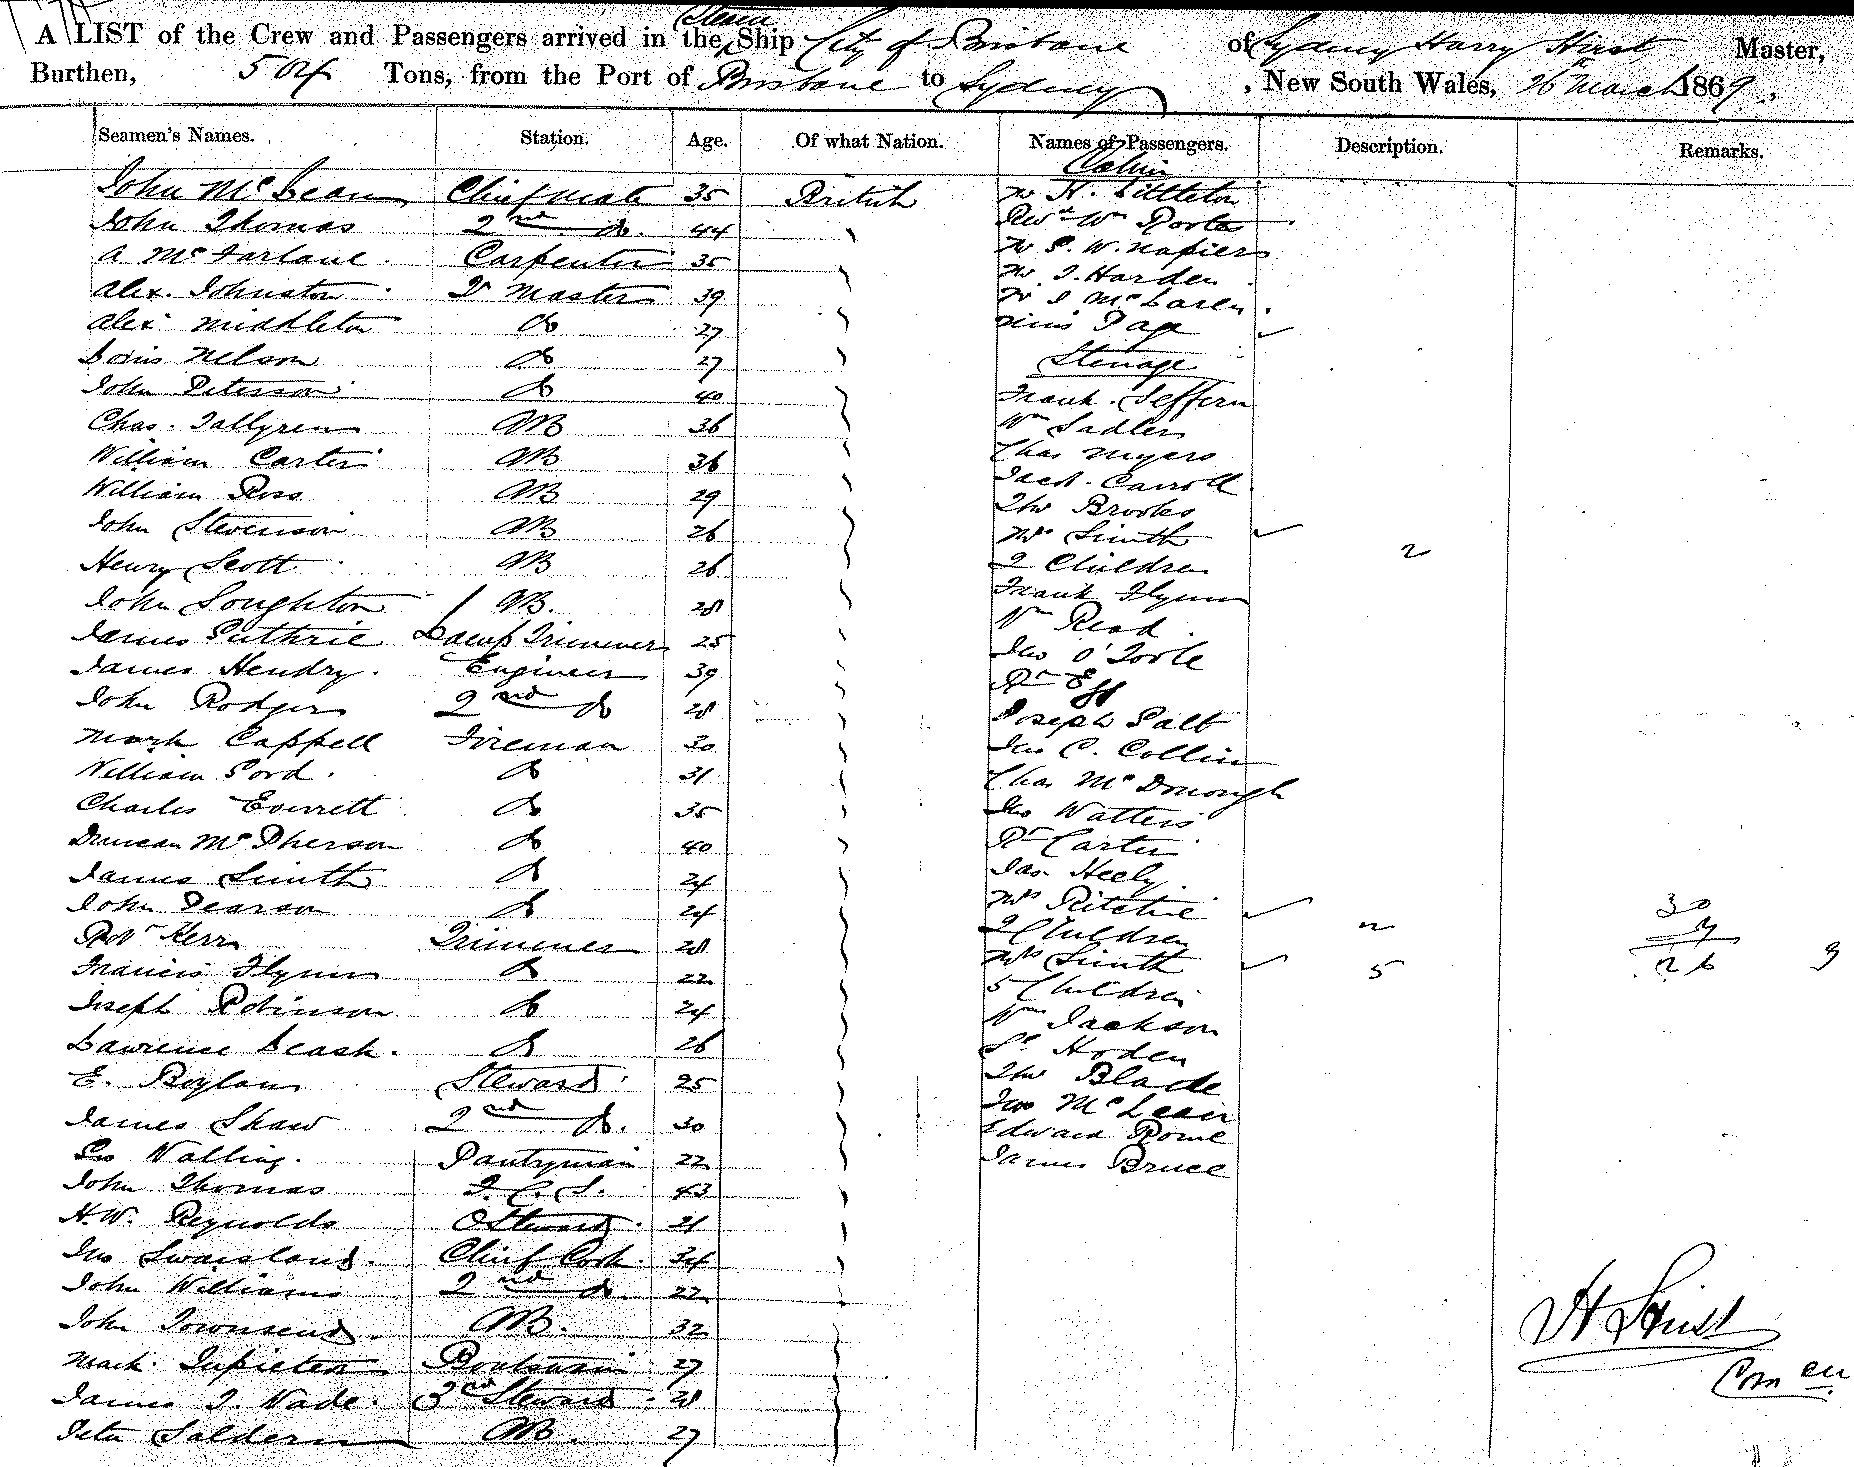 A LIST of the Crew and Passengers arrived in the Steam Ship City of Brisbane of Sydney Harry Hirst Master,
Burthen, 504 Tons, from the Port of Brisbane to Sydney, New South Wales, 26th March 1869,
Seamen's Names. Station. Age. Of what Nation. Names of Passengers. Description. Remarks.
Cabin
John McLean Chief mate 35 British Mr H. Littleton
John Thomas 2nd do. 44 Revd Wm
A McFarlane Carpenter 35 Mr S. W. Napier
Alex. Johnston Qr Master 39 Mr J. Harden
Mr J McLaren
Alex Middleton do 27 Miss Page
Louis Nelson do 27 Steerage
John Peterson do 40 Frank
Chas. AB 36 Wm Sadler
William Carter AB 36 Chas Myers
William Ross AB 29 Carroll
Thos Brooks
John Stevenson AB 26 Mrs Smith
Henry Scott AB 26 2 Children 2
John Loughton AB. 28 Frank Flynn
James Guthrie Lamp Trimmer 25 Wm Read
James Hendry Engineer 39 Jas O'Toole
John Rodger 2nd do 28
Mark Cappell Fireman 30 Joseph Salt
William Ford do 31 Jno C. Collin
Charles Everett do 35 Chas McDonough
Duncan McPherson do 40 Jno Watters
James Smith do 24 Carter
John Pearson do 24 Jas. Heely
Robt Kerr Trimmer 28 Mrs Ritchie 30
Francis Flynn do 22 2 Children 2 4
Joseph Robinson do 24 Mrs Smith 26 9
Lawrence Leash do 26 5 Children 5
E. Boylan Steward 25 Wm Jackson
James Shaw 2nd do. 30 Hoden
Geo Walling Pantryman 22 Thos Blade
John Thomas F. C. S. 43 Jno McLean
H. W. Reynolds Steward 21 Edward Rowe
Jno Swaisland Chief Cook 34 James Bruce
John Williams 2nd do. 22
John Townsend AB. 32
Mark Boatswain 27
James J. Wade 3rd Steward 28
Peter Saldern AB. 27
H Hirst
Comen